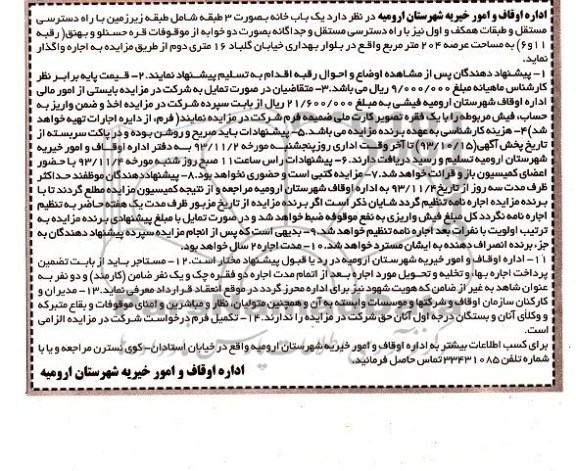 اداره اوقاف و امور خیریه شهرستان ارومیه در نظر دارد یک باب خانه بصورت ۳ طبقه شامل طبقه زیرزمین با راه دسترسی
مستقل و طبقات همکف و اول نیز با راه دسترسی مستقل و جداگانه بصورت دو خوابه از موقوفات قره حسنلو و بهنق( رقبه
۱۱و۶) به مساحت عرصه ۲۰۴ متر مربع واقع در بلوار بهداری خیابان گلباد ۱۶ متری دوم از طریق مزایده به اجاره واگذار
نماید.
۱- پیشنهاد دهندگان پس از مشاهده اوضاع و احوال رقبه اقدام به تسلیم پیشنهاد نمایند.۲- قیمت پایه برابر نظر
کارشناس ماهیانه مبلغ ۹/۰۰۰/۰۰۰ ریال می باشد.۳- متقاضیان در صورت تمایل به شرکت در مزایده بایستی از امور مالی
اداره اوقاف شهرستان ارومیه فیشی به مبلغ ۲۱/۶۰۰/۰۰۰ ریال از بابت سپرده شرکت در مزایده اخذ و ضمن واریز به
حساب، فیش مربوطه را با یک فقره تصویر کارت ملی ضمیمه فرم شرکت در مزایده نمایند( فرم، از دایره اجارات تهیه خواهد
شد)۴- هزینه کارشناسی به عهده برنده مزایده می باشد.۵- پیشنهادات باید صریح و روشن بوده و در پاکت سربسته از
تاریخ پخش آگهی(۹۳/۱۰/۱۵) تا آخر وقت اداری روزپنجشنبه مورخه ۹۳/۱۱/۲ به دفتر اداره اوقاف و امور خیریه
شهرستان ارومیه تسلیم و رسید دریافت دارند.۶- پیشنهادات راس ساعت۱۱ صبح روز شنبه مورخه ۹۳/۱۱/۴ با حضور
اعضای کمیسیون باز و قرائت خواهد شد.۷- مزایده کتبی است و حضوری نخواهد بود.۸- پیشنهاد دهندگان موظفند حداکثر
ظرف مدت سه روز از تاریخ۹۳/۱۱/۴ به اداره اوقاف شهرستان ارومیه مراجعه و از نتیجه کمیسیون مزایده مطلع گردند تا با
برنده مزایده اجاره نامه تنظیم گردد شایان ذکر است اگر برنده مزایده از تاریخ مزبور ظرف مدت یک هفته حاضر به تنظیم
اجاره نامه نگردد کل مبلغ فیش واریزی به نفع موقوفه ضبط خواهد شد و در صورت تمایل با مبلغ پیشنهادی برنده مزایده به
ترتیب اولویت با نفرات بعد اجاره نامه تنظیم خواهد شد.۹- بدیهی است که پس از انجام مزایده سپرده پیشنهاد دهندگان به
جز، برنده انصراف دهنده به ایشان مسترد خواهد شد.۱۰- مدت اجاره۲ سال خواهد بود.
۱۱- اداره اوقاف و امور خیریه شهرستان ارومیه در رد یا قبول پیشنهاد مختار است.۱۲- مستاجر باید از بابت تضمین
پرداخت اجاره بها، و تخلیه و تحویل مورد اجاره بعد از اتمام مدت اجاره دو فقره چک و یک نفر ضامن (کارمند) و دو نفر به
عنوان شاهد به غیر از ضامن که هویت شهود نیز برای اداره محرز گردد در موقع انعقاد قرارداد معرفی نماید.۱۳- مدیران و
کارکنان سازمان اوقاف و شرکتها و موسسات وابسته به آن و همچنین متولیان، نظار و مباشرین و امنای موقوفات و بقاع متبرکه
و وکلای آنان و بستگان درجه اول آنان حق شرکت در مزایده را ندارند.۱۴- تکمیل فرم درخواست شرکت در مزایده الزامی
است.
برای کسب اطلاعات بیشتر به اداره اوقاف و امور خیریه شهرستان ارومیه واقع در خیابان استادان- کوی نسترن مراجعه و یا با
شماره تلفن ۳۳۴۳۱۰۸۵ تماس حاصل فرمائید.
اداره اوقاف و امور خیریه شهرستان ارومیه